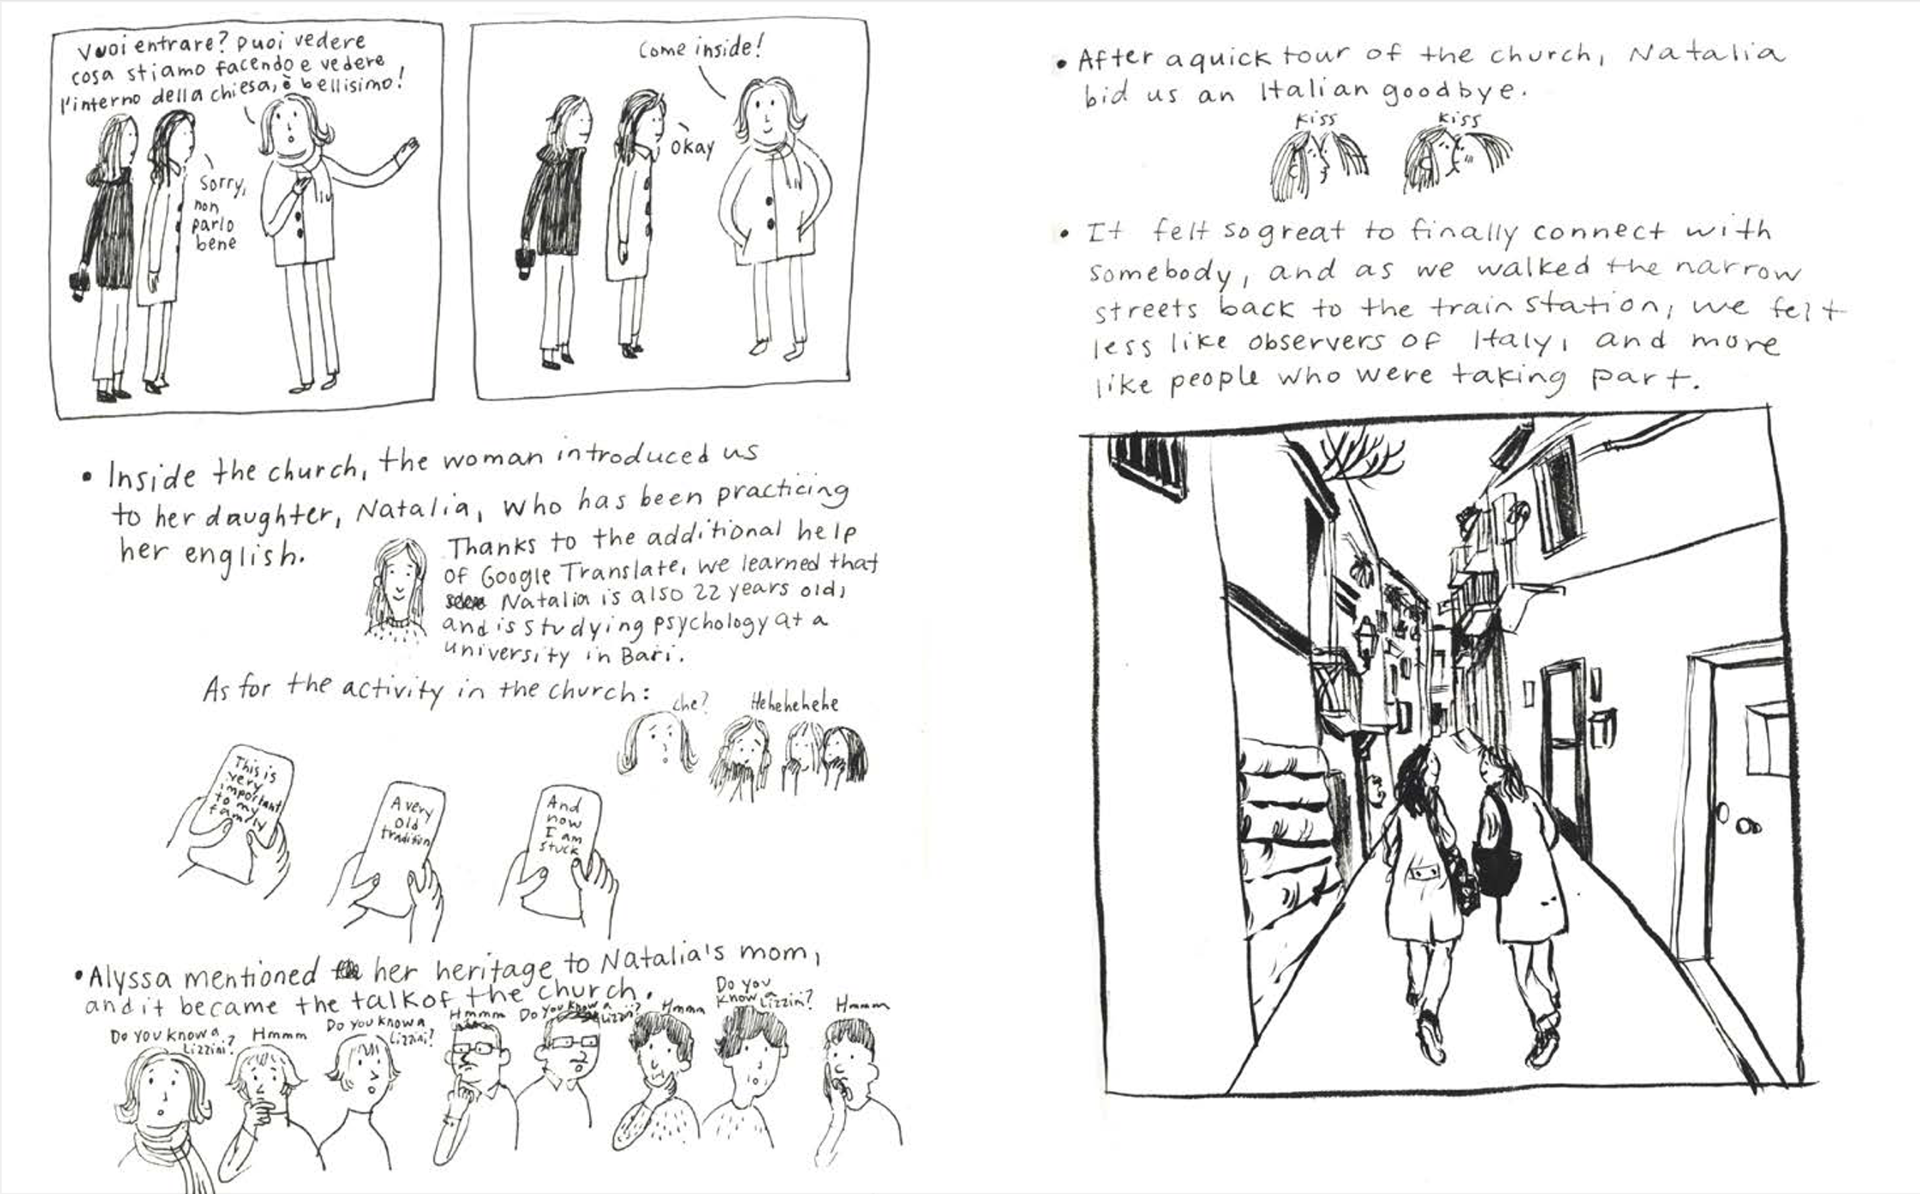 Vuoi entrare? Puoi vedere
cosa stiamo facendo e vedere
l'interno della chiesa, è bellisimo!
Sorry,
non
parlo
bene
Come inside!
Okay
• Inside the church, the woman introduced us
to her daughter, Natalia, who has been practicing
her english.
Thanks to the additional help
of Google Translate, we learned that
Natalia is also 22 years old,
and is studying psychology at a
university in Bari.
As for the activity in the church:
che?
Hehehehehe
This is
very
important
to my
family
A very
old
tradition
And
now
I am
stuck
• Alyssa mentioned her heritage to Natalia's mom,
and it became the talk of the church.
Do you know a
Lizzini?
Hmmm
Do you know a
Lizzini?
Hmmm
Do you know a
Lizzini?
Hmmm
Do you
know a
Lizzini?
Hmmm
• After a quick tour of the church, Natalia
bid us an Italian goodbye.
kiss
kiss
• It felt so great to finally connect with
somebody, and as we walked the narrow
streets back to the train station, we felt
less like observers of Italy, and more
like people who were taking part.